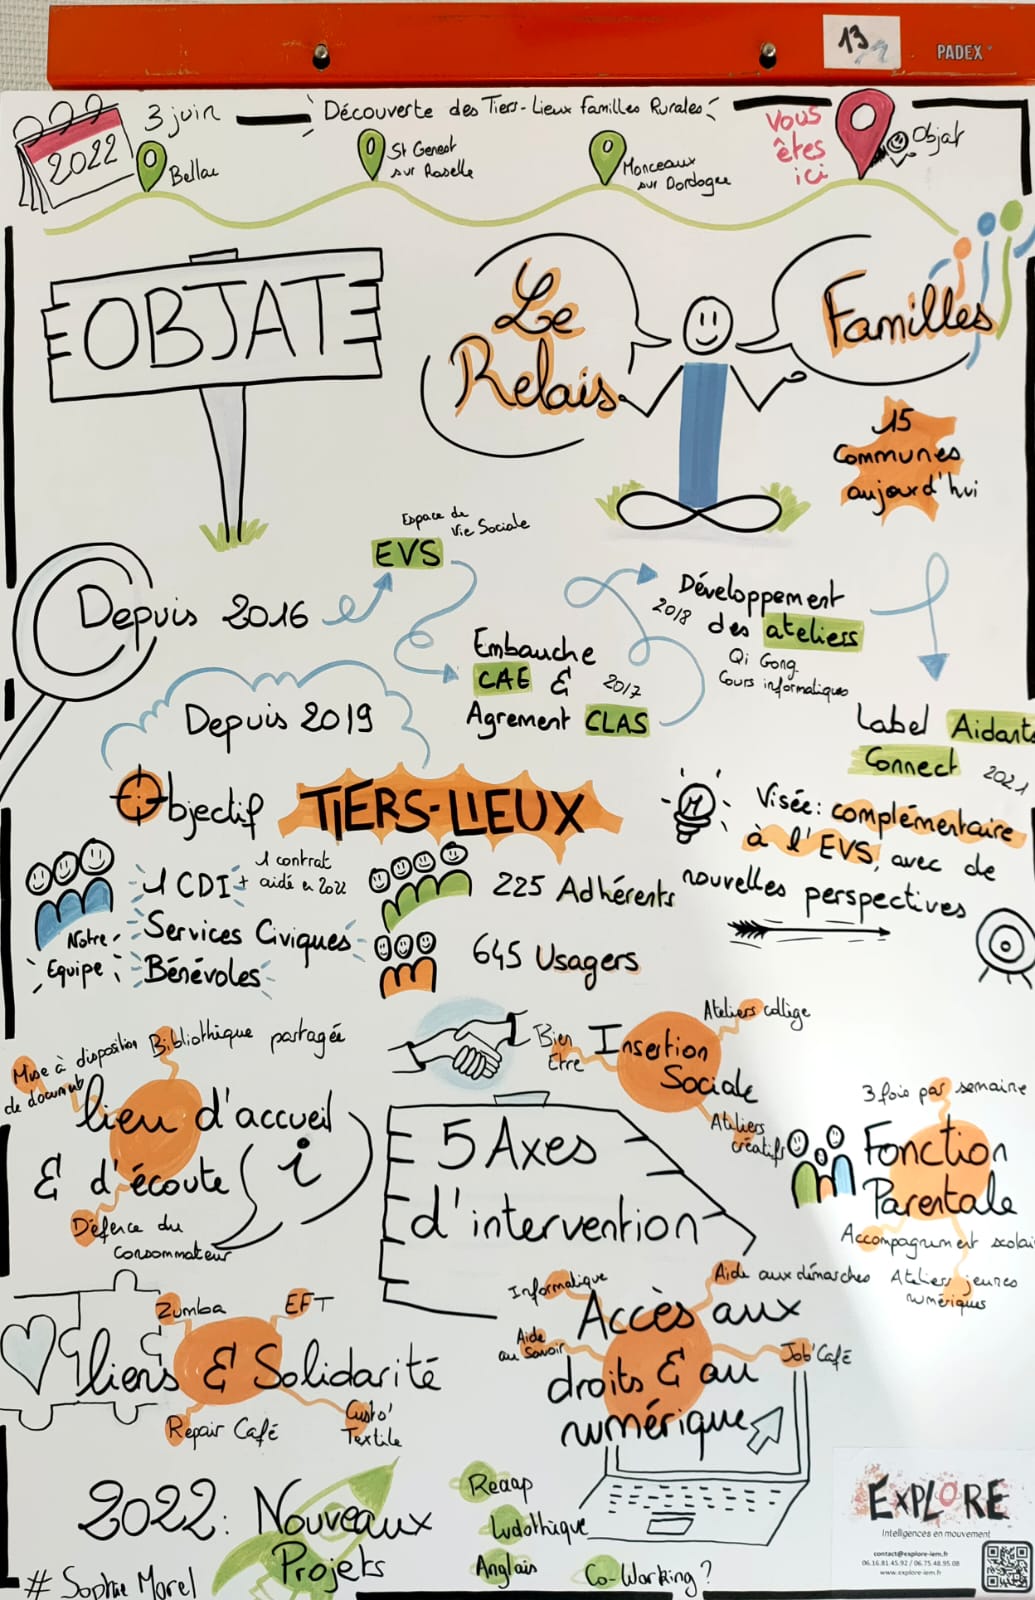 13
PADEX
2022
3 juin
Découverte des Tiers-Lieux familles Rurales
Bellac
St Genest
sur Roselle
Monceaux
sur Dordogne
Vous
êtes
ici
Objat
OBJAT
Le
Relais
Familles
15
Communes
aujourd'hui
Espace de
Vie Sociale
EVS
Depuis 2016
Embauche
CAE &
2017
Agrement CLAS
Développement
2018
des ateliers
Qi Gong
Cours informatiques
Label Aidants
Connect
2021
Depuis 2019
Objectif TIERS-LIEUX
Visée: complémentaire
à l'EVS, avec de
nouvelles perspectives
Notre
Equipe
1 CDI + 1 contrat
aidé en 2022
Services Civiques
Bénévoles
225 Adhérents
645 Usagers
Mise à disposition
de document
Bibliothèque partagée
lieu d'accueil
& d'écoute
i
Défence du
Consommateur
Bien
Etre
Insertion
Sociale
Ateliers collège
Ateliers
créatifs
5 Axes
d'intervention
3 fois par semaine
Fonction
Parentale
Accompagnement scolai
Ateliers jeunes
numériques
Zumba
EFT
liens & Solidarité
Repair Café
Custo'
Textile
Informatique
Aide aux démarches
Accès aux
droits & au
numérique
Aide
au Savoir
Job'Café
2022: Nouveaux
Projets
Reaap
Ludothèque
Anglais
Co-Working?
# Sophie Morel
EXPLORE
Intelligences en mouvement
contact@explore-iem.fr
06.16.81.45.92 / 06.75.48.95.08
www.explore-iem.fr